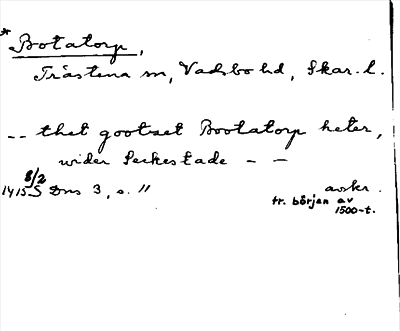 * Botatorp,
Trästena sn, Vadsbo hd, Skar. l.
-- thet gootzet Bootatorp heter,
wider Leckestade - -
1415 8/2 S Dns 3, s. 11 avskr.
fr. början av
1500-t.